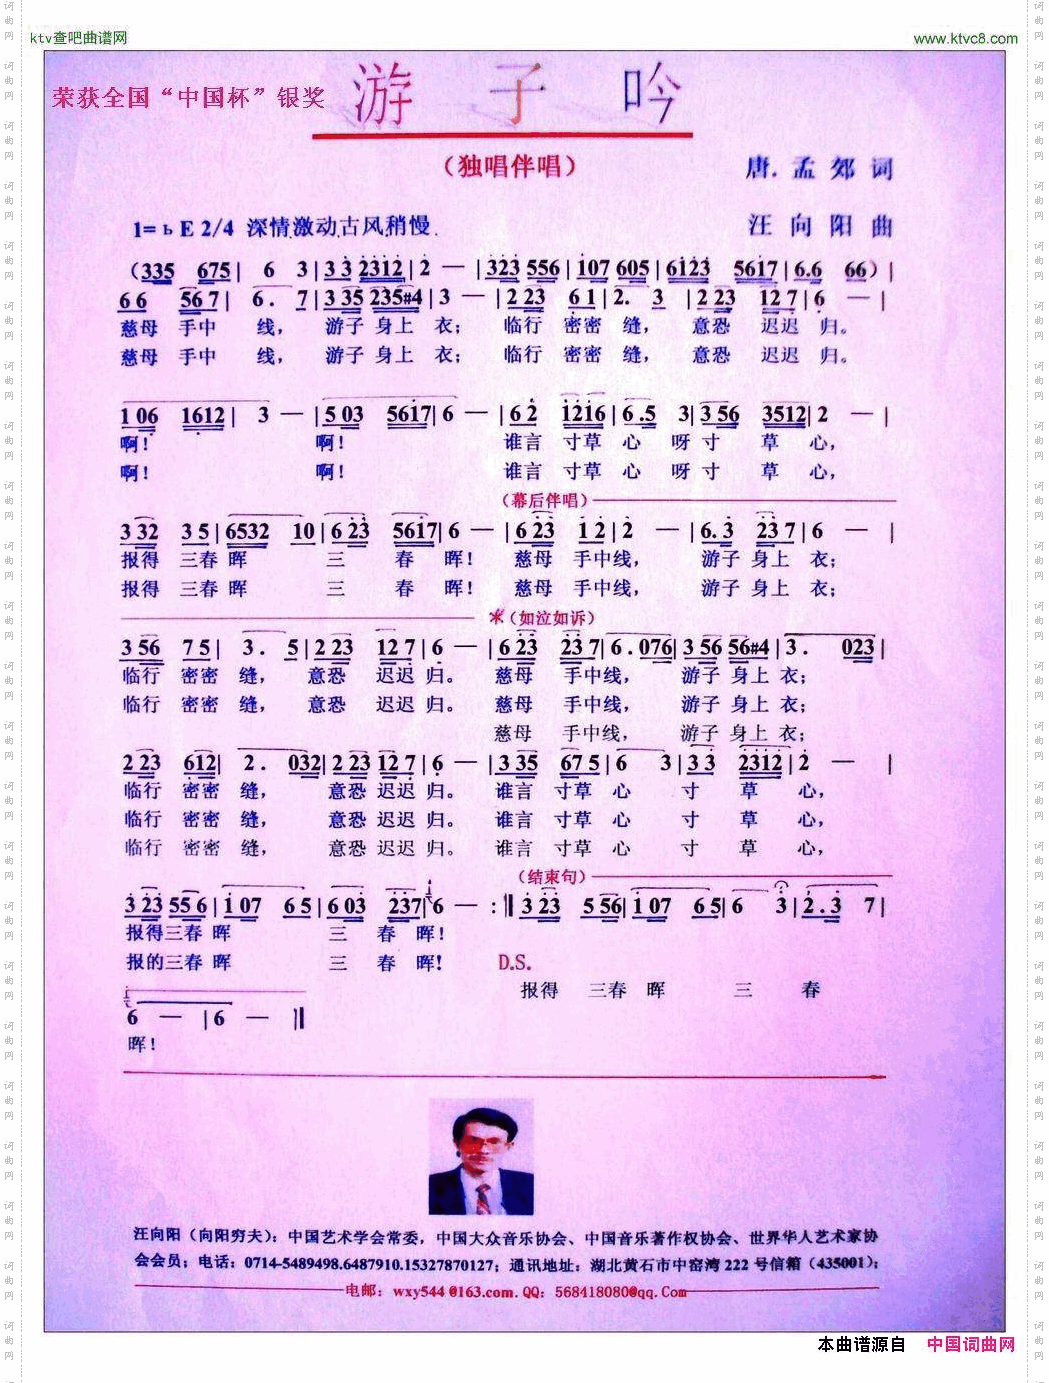 ktv查吧曲谱网 www.ktvc8.com
荣获全国“中国杯”银奖 游 子 吟
（独唱伴唱） 唐.孟郊词
1=♭E 2/4 深情激动古风稍慢 汪向阳曲
（335 675| 6 3|33 2312|2 —|323 556|107 605|6123 5617|6.6 66）|
66 567| 6. 7|335 235#4|3 —|223 61|2. 3 |223 127|6 —|
慈母 手中 线， 游子 身上 衣； 临行 密密 缝， 意恐 迟迟 归。
慈母 手中 线， 游子 身上 衣； 临行 密密 缝， 意恐 迟迟 归。
106 1612| 3 —|503 5617|6 —|62 1216|6.5 3|356 3512|2 —|
啊！ 啊！ 谁言 寸草 心 呀 寸 草 心，
啊！ 啊！ 谁言 寸草 心 呀 寸 草 心，
（幕后伴唱）
332 35|6532 10|623 5617|6 —|623 12|2 —|6.3 237|6 —|
报得 三春 晖 三 春 晖！ 慈母 手中线， 游子 身上 衣；
报得 三春 晖 三 春 晖！ 慈母 手中线， 游子 身上 衣；
（如泣如诉）
356 75| 3. 5|223 127|6 —|623 237|6.076|356 56#4|3. 023|
临行 密密 缝， 意恐 迟迟 归。 慈母 手中线， 游子 身上 衣；
临行 密密 缝， 意恐 迟迟 归。 慈母 手中线， 游子 身上 衣；
慈母 手中线， 游子 身上 衣；
223 612| 2. 032|223 127|6 —|335 675|6 3|33 2312|2 —|
临行 密密 缝， 意恐 迟迟 归。 谁言 寸草 心 寸 草 心，
临行 密密 缝， 意恐 迟迟 归。 谁言 寸草 心 寸 草 心，
临行 密密 缝， 意恐 迟迟 归。 谁言 寸草 心 寸 草 心，
（结束句）
323 556|107 65|603 237|6 — :‖323 556|107 65|6 3|2.3 7|
报得三春 晖 三 春 晖！
报的三春 晖 三 春 晖！ D.S.
报得 三春 晖 三 春
6 — |6 — ‖
晖！
汪向阳（向阳穷夫）：中国艺术学会常委，中国大众音乐协会、中国音乐著作权协会、世界华人艺术家协
会会员；电话：0714-5489498.6487910.15327870127；通讯地址：湖北黄石市中窑湾 222 号信箱（435001）；
电邮：wxy544@163.com.QQ：568418080@qq.Com
本曲谱源自 中国词曲网